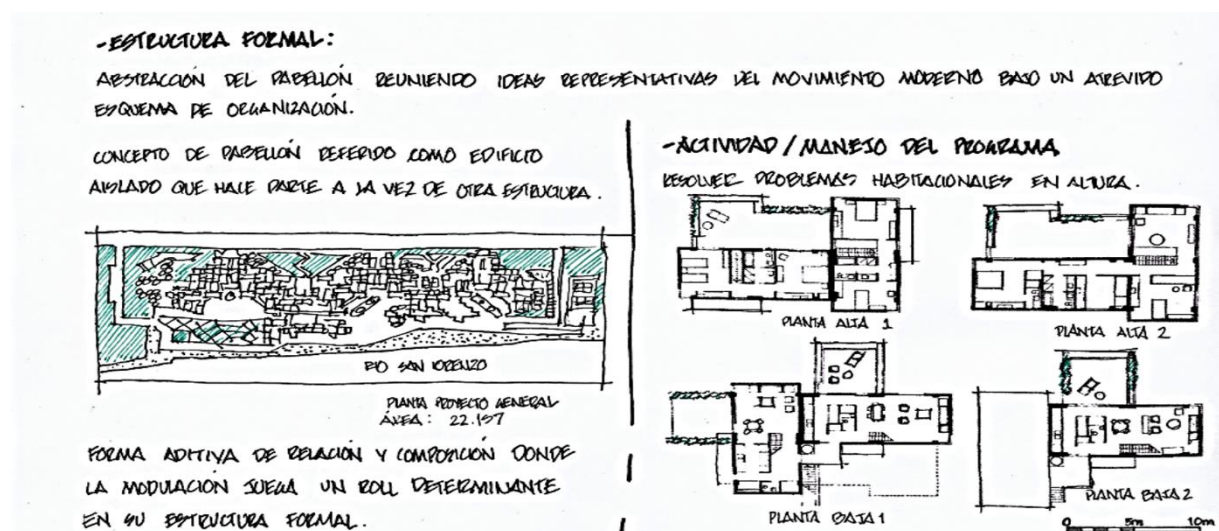 -ESTRUCTURA FORMAL:
ABSTRACCIÓN DEL PABELLÓN REUNIENDO IDEAS REPRESENTATIVAS DEL MOVIMIENTO MODERNO BAJO UN ATREVIDO
ESQUEMA DE ORGANIZACIÓN.
CONCEPTO DE PABELLÓN REFERIDO COMO EDIFICIO
AISLADO QUE HACE PARTE A LA VEZ DE OTRA ESTRUCTURA.
RIO SAN LORENZO
PLANTA PROYECTO GENERAL
ÁREA: 22.157
FORMA ADITIVA DE RELACIÓN Y COMPOSICIÓN DONDE
LA MODULACIÓN JUEGA UN ROLL DETERMINANTE
EN SU ESTRUCTURA FORMAL.
-ACTIVIDAD/MANEJO DEL PROGRAMA
RESOLVER PROBLEMAS HABITACIONALES EN ALTURA.
PLANTA ALTA 1
PLANTA ALTA 2
PLANTA BAJA 1
PLANTA BAJA 2
0 5m 10m